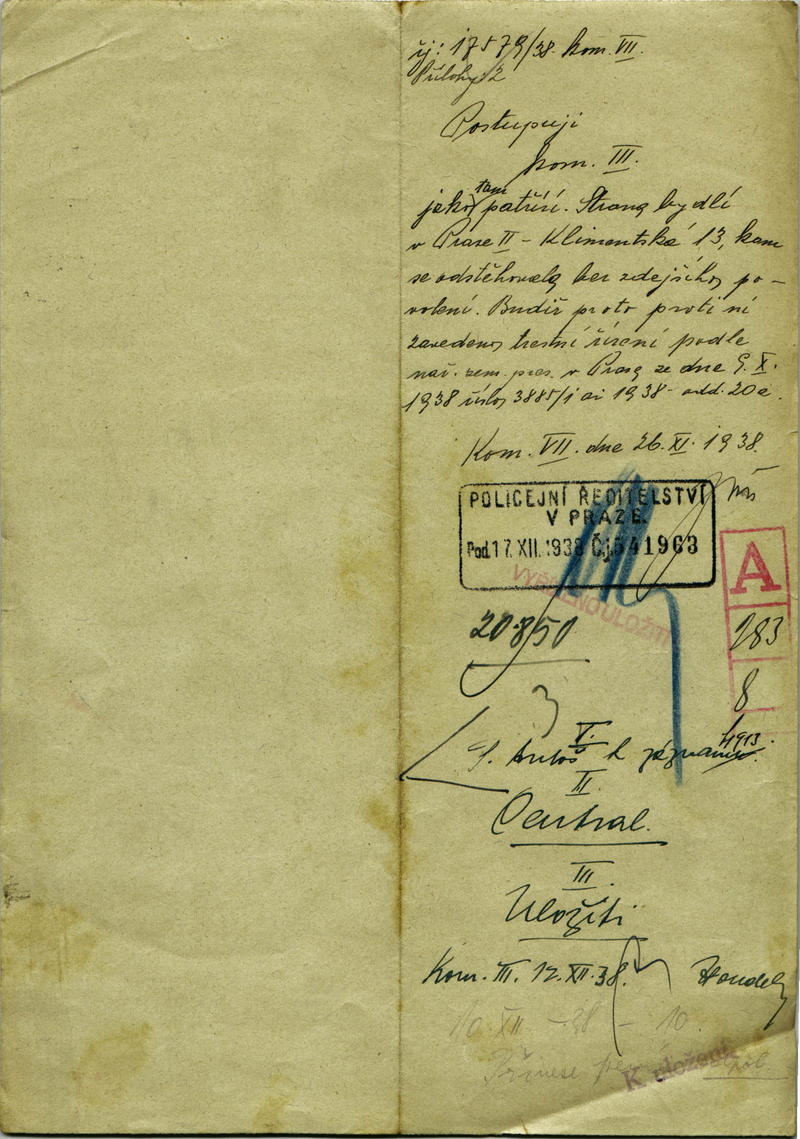 čj: 17579/38 kom. VII.
Přílohy 2
Postupuji
kom. III.
jako tam patřící. Strana bydlí
v Praze II - Klimentská 13, kam
se odstěhovala bez zdejšího po-
volení. Budiž proto proti ní
zavedeno trestní řízení podle
nař. zem. pres. v Praze ze dne 9. X.
1938 číslo 3885/1 ai 1938 - odd. 20a.
Kom. VII. dne 26. XI. 1938.
POLICEJNÍ ŘEDITELSTVÍ
V PRAZE.
Pod 17. XII. 1938 Čj 541963
VYŘÍZENO ULOŽIT
A
20850
283
8
3
I. 4913
k záznamu
II
Central.
III
Uložiti
Kom. III. 12. XII. 38.
10 XII - 38 - 10.
Přinese
K uložení